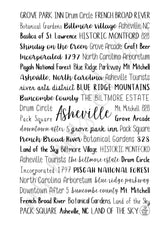 GROVE PARK INN Drum Circle FRENCH BROAD RIVER
Botanical Gardens Biltmore village Asheville NC
Basilica of St. Lawrence HISTORIC MONTFORD
Shindig on the Green Grove Arcade Craft Beer
Incorporated 1797 North Carolina Arboretum
Pisgah National Forest Blue Ridge Parkway Mt. Mitchell
Asheville, North Carolina Asheville Tourists
river arts district BLUE RIDGE MOUNTAINS
Buncombe County THE BILTMORE ESTATE
Drum Circle
Mt. Mitchell
Pack Square
Asheville
Grove Arcade
downtown Asheville
grove park inn
Pack Square
french broad River Botanical Gardens
Land of the Sky Biltmore Village HISTORIC MONTFORD
Asheville Tourists the biltmore estate Drum Circle
Incorporated 1797 PISGAH NATIONAL FOREST
North Carolina Arboretum blue ridge parkway
Downtown After 5 buncombe county Mt. Mitchell
French Broad River Botanical Gardens Land of the Sky
PACK SQUARE Asheville, NC LAND OF THE SKY